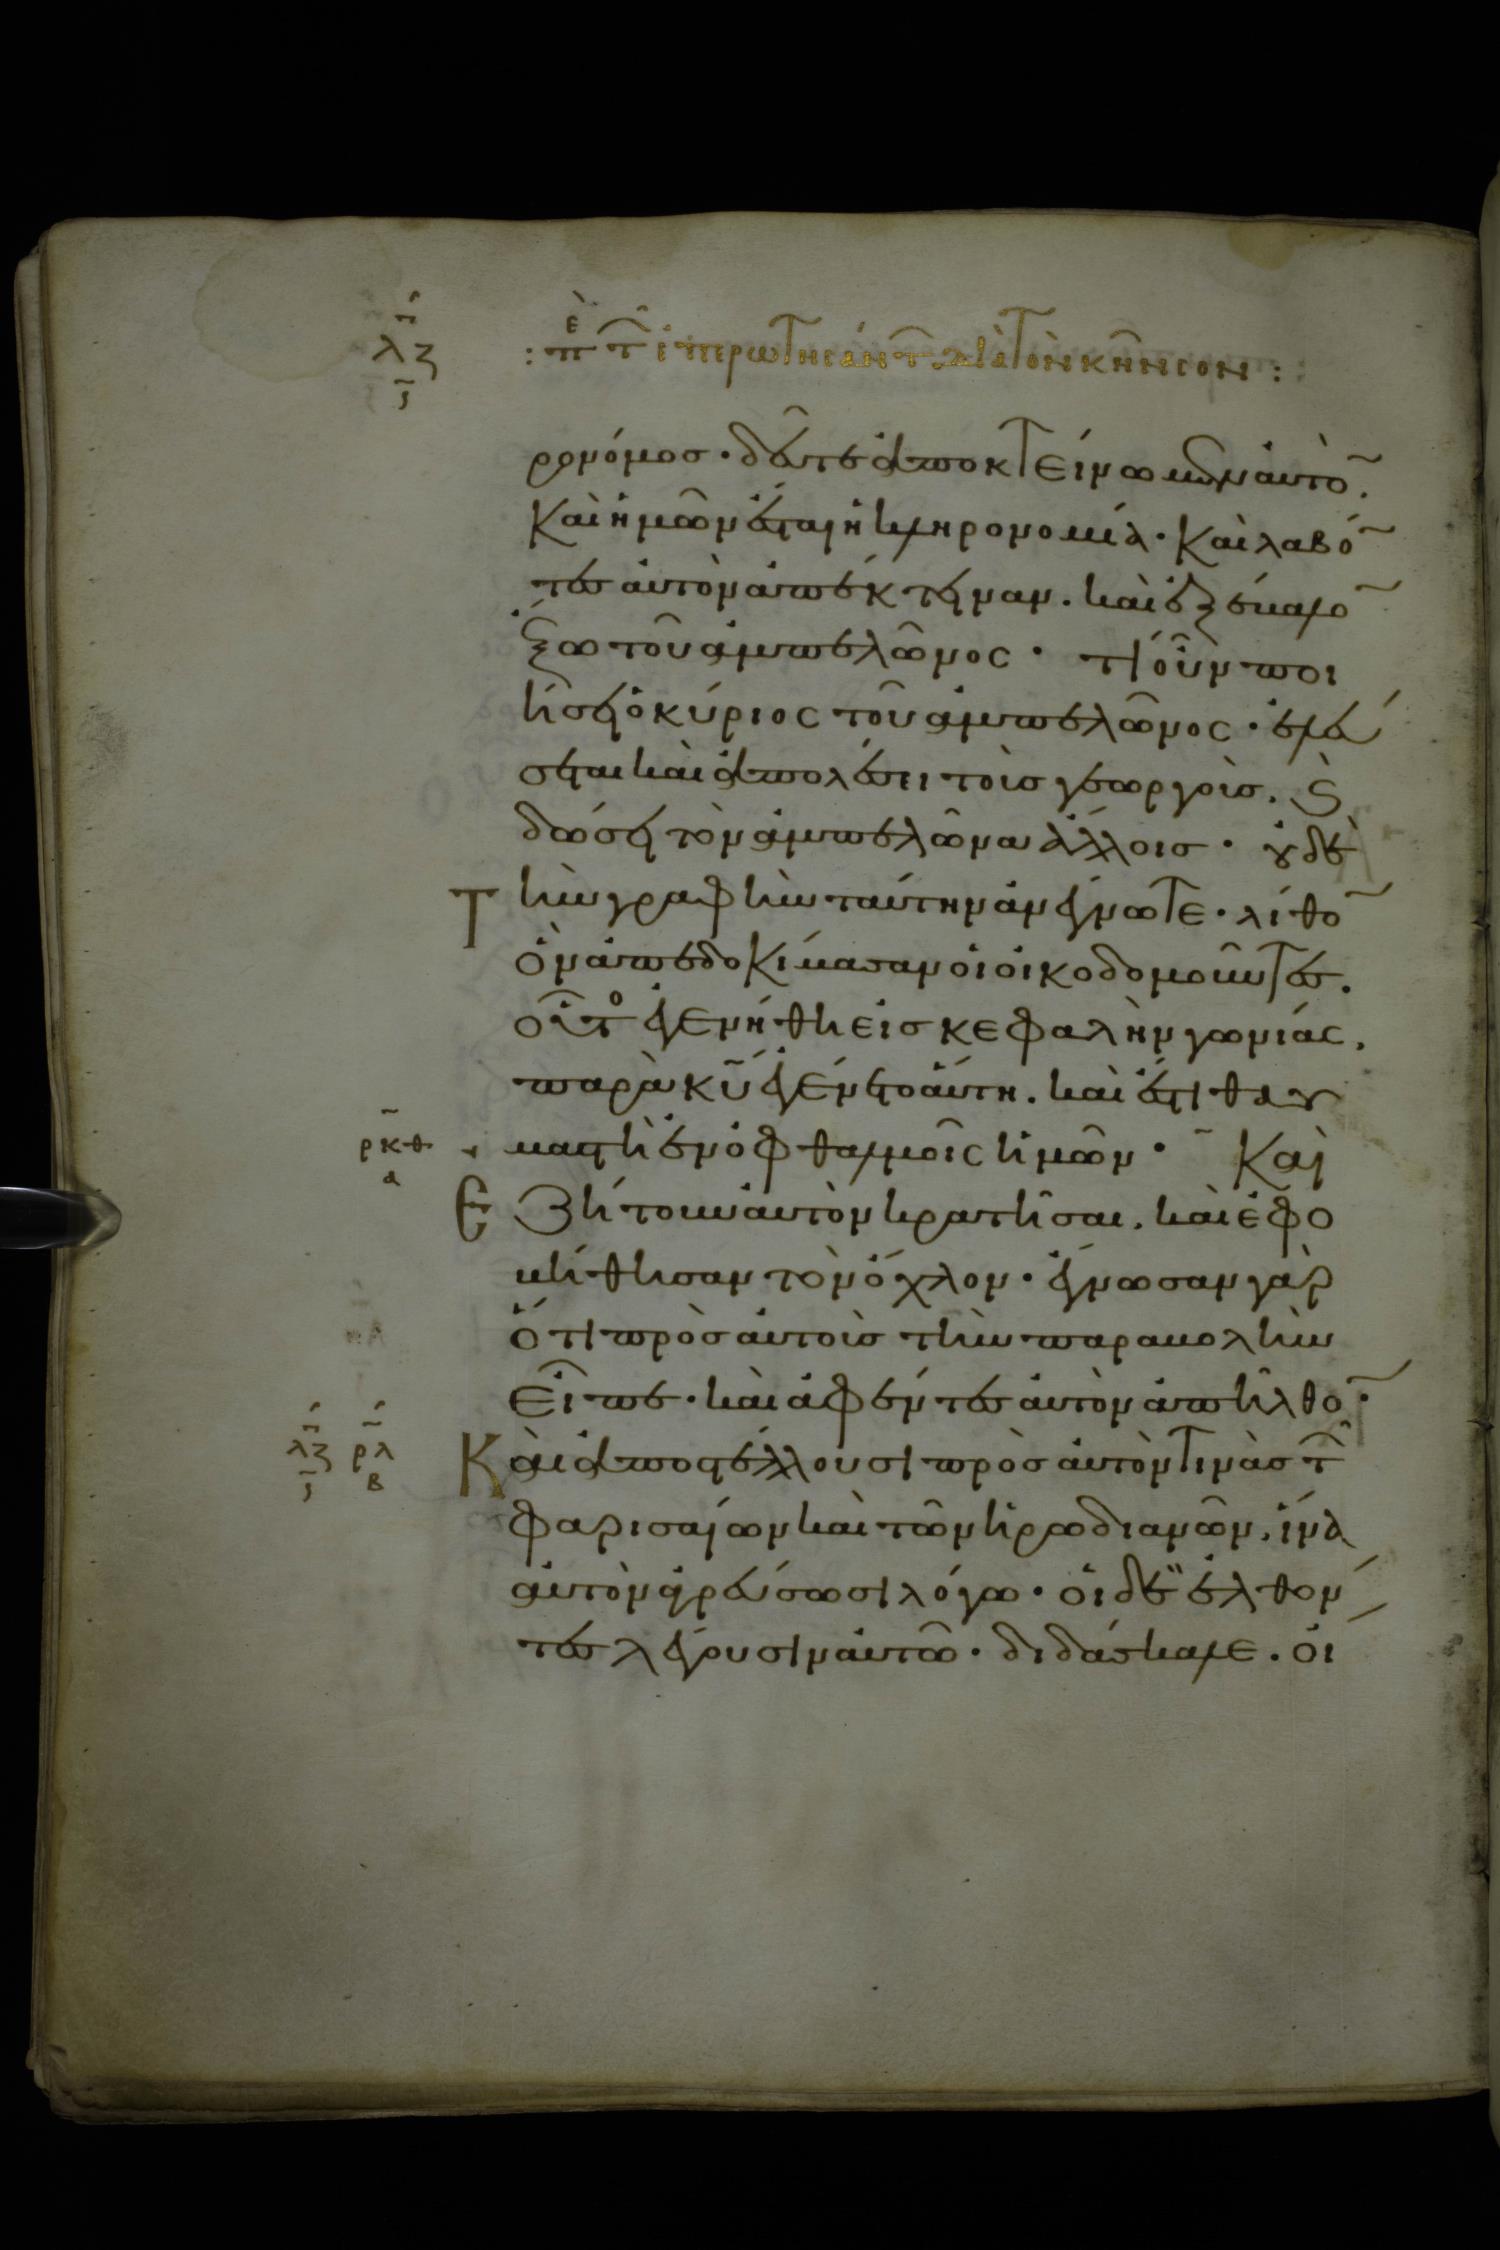 λζ
ς
: πε τ ἐπερωτησάντ διὰ τὸν κῆνσον :
ρονόμοσ · δεῦτε ἀποκτείνωμεν ἀυτὸ̅.
Και ἡμῶν ἔσται ἡ κληρονομία · Και λαβό̅
τες ἀυτὸν ἀπέκτειναν . και ἐξέβαλο̅
ἔξω τοῦ ἀμπελῶνος · τί οὖν ποι
ήσει ὁ κύριος τοῦ ἀμπελῶνος · ἐλεύ
σεται και ἀπολέσει τοὺσ γεωργοὺσ . Ϗ
δώσει τὸν ἀμπελῶνα ἄλλοισ · ουδὲ
Τ ὴν γραφὴν ταύτην ἀνέγνωτε · λίθο̅
ὃν ἀπεδοκίμασαν οἱ οἰκοδομοῦντες .
οὗτο ἐγενήθη εἰσ κεφαλὴν γωνίας .
παρὰ κ̅υ̅ ἐγένετο ἀύτη . και ἔστι θαυ
ρκθ
α
μαστὴ ἐν ὀφθαλμοῖς ἡμῶν · Και
Ε ζήτουν ἀυτὸν κρατῆσαι . και ἐφο
βήθησαν τὸν ὄχλον · ἔγνωσαν γὰρ
ὅτι πρὸσ ἀυτοὺσ τὴν παραβολὴν
εἶπε · και ἀφέντες ἀυτὸν ἀπῆλθο̅ ·
λζ
ς
ρλ
β
Κ αὶ ἀποστέλλουσι πρὸσ ἀυτὸν τινὰσ τ
φαρισαίων και τῶν ἡρωδιανῶν . ἵνα
ἀυτὸν ἀγρεύσωσι λόγω · οἱ δὲ ἐλθον
τες λέγουσιν ἀυτῶ · διδάσκαλε . οἱ